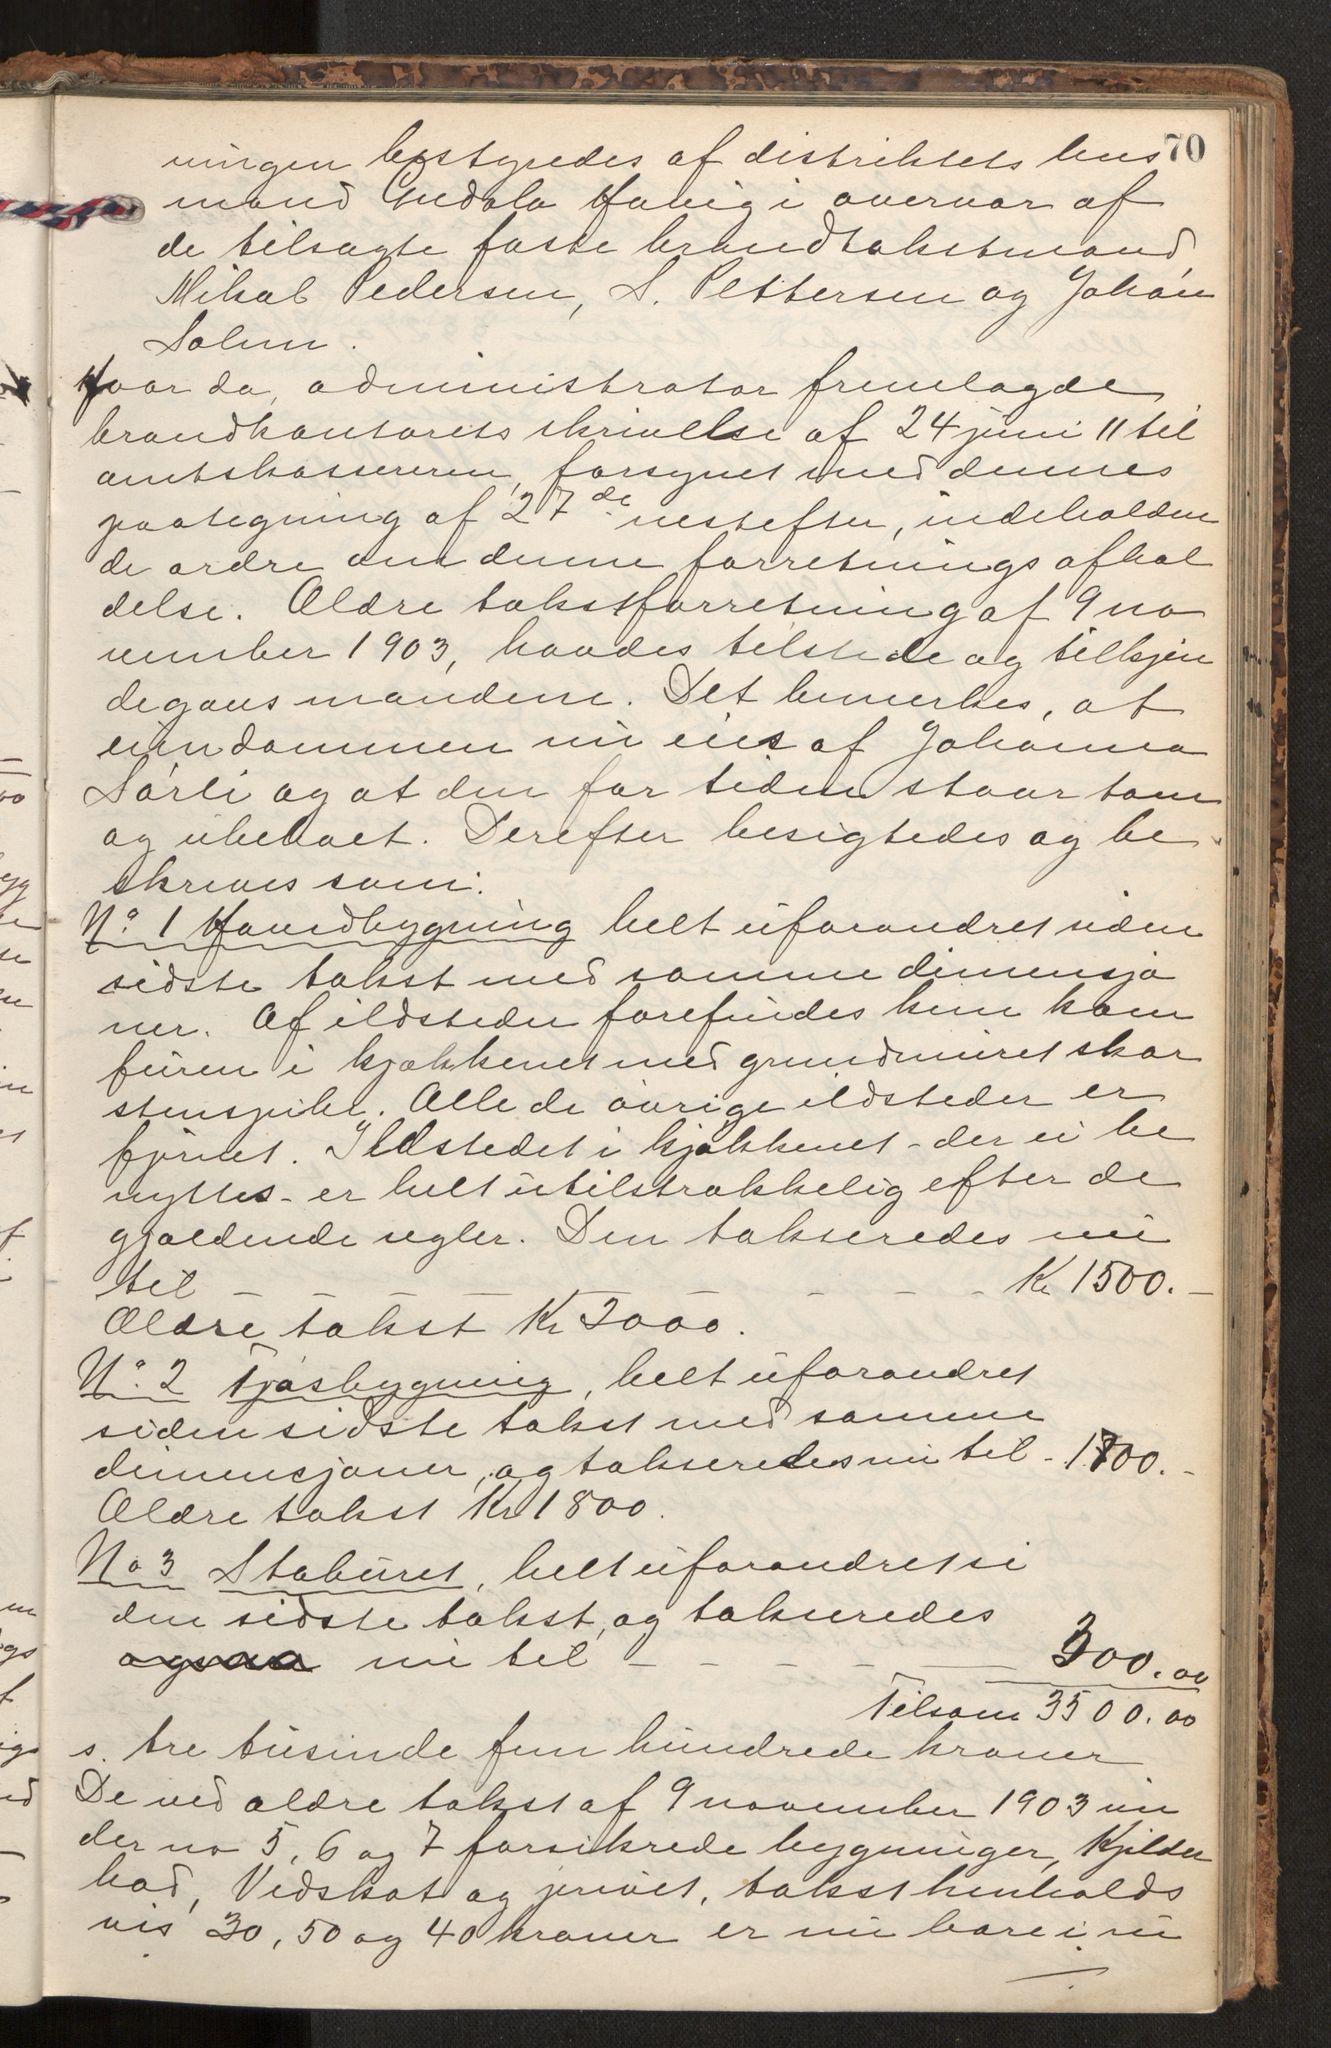 70
ningen bestyredes af distriktets lens
mand Gudolo Hanig i overvær af
de tilsagte faste brandtakstmænd
Mikal Pedersen, S. Pettersen og Johan
Solem.
Hvor da administrator fremlagde
brandkontorets skrivelse af 24 juni 11 til
amtskassereren, forsynet med dennes
paategning af 27de nestefter, indeholden
de ordre om denne forretnings afhol
delse. Ældre takstforretning af 9 no
vember 1903, havdes tilstede og tilkjen
degaves mændene. Det bemerkes, at
eiendommen nu eies af Johanna
Sørli og at den for tiden staar tom
og ubeboet. Derefter besigtedes og be
skreves som:
No. 1 Hovedbygning helt uforandret siden
sidste takst med samme dimensjo
ner. Af ildsteder forefindes kun kom
furen i kjøkkenet med grundmuret skor
stenspibe. Alle de øvrige ildsteder er
fjernet. Ildstedet i kjøkkenet - der ei be
nyttes - er helt utilstrækkelig efter de
gjældende regler. Den takseredes nu
til - - - - - - - - Kr 1500.-
Ældre takst Kr 2000.
No. 2 Fjøsbygning, helt uforandret
siden sidste takst med samme
dimensjoner, og takseredes nu til - 1700.-
Ældre takst Kr 1800.
No 3 Staburet, helt uforandret si
den sidste takst, og takseredes
ogsaa nu til - - - - - 300.00
Tilsam 3500.00
s. tre tusinde fem hundrede kroner
De ved ældre takst af 9 november 1903 un
der no 5, 6 og 7 forsikrede bygninger, Kjelder
bod, Vedskot og privet, takst henholds
vis 30, 50 og 40 kroner er nu bare i ru